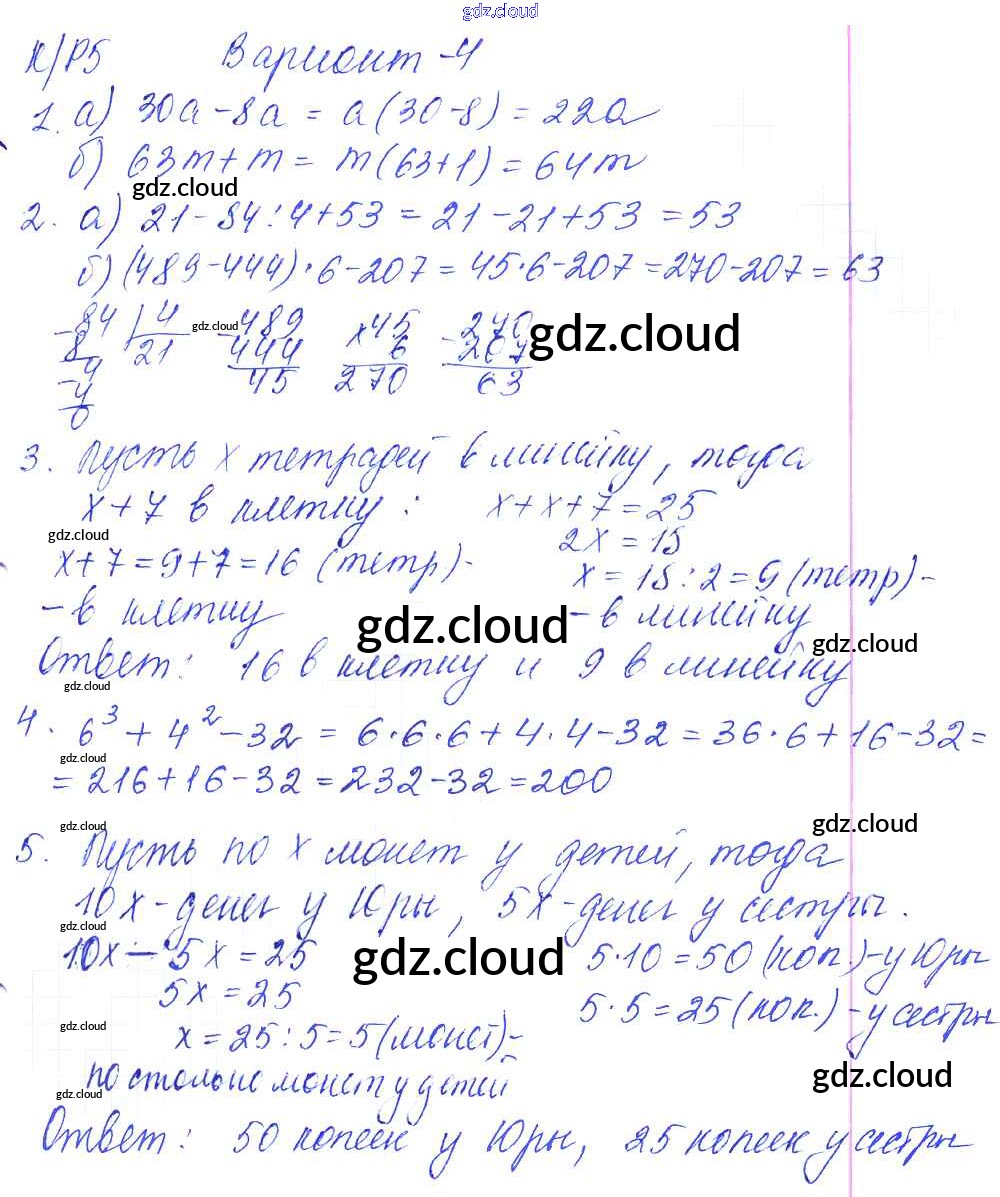 gdz.cloud
К/Р5 Вариант -4
1. а) 30а - 8а = а(30-8) = 22а
б) 63m + m = m(63+1) = 64m
gdz.cloud
2. а) 21 - 84 : 4 + 53 = 21 - 21 + 53 = 53
б) (489-444)·6-207 = 45·6-207 = 270-207 = 63
-84 | 4 gdz.cloud -489 ×45 -270 gdz.cloud
8 21 444 6 207
4 45 270 63
-4
0
3. Пусть x тетрадей в линейку, тогда
x + 7 в клетку : x + x + 7 = 25
gdz.cloud
2x = 18
x + 7 = 9 + 7 = 16 (тетр) -
x = 18 : 2 = 9 (тетр) -
- в клетку - в линейку
gdz.cloud
gdz.cloud
Ответ: 16 в клетку и 9 в линейку
gdz.cloud
4. 6³ + 4² - 32 = 6·6·6 + 4·4 - 32 = 36·6 + 16 - 32 =
gdz.cloud
= 216 + 16 - 32 = 232 - 32 = 200
gdz.cloud
gdz.cloud
5. Пусть по x монет у детей, тогда
10x - денег у Юры, 5x - денег у сестры.
gdz.cloud
10x - 5x = 25 gdz.cloud 5·10 = 50 (коп.) - у Юры
5x = 25 5·5 = 25 (коп.) - у сестры
gdz.cloud
x = 25 : 5 = 5 (монет) -
по столько монет у детей
gdz.cloud
gdz.cloud
Ответ: 50 копеек у Юры, 25 копеек у сестры